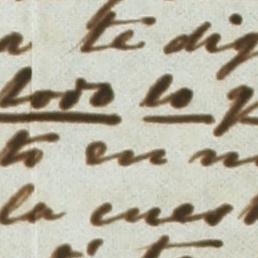 a te dig
todo lo p
to en m
la cues